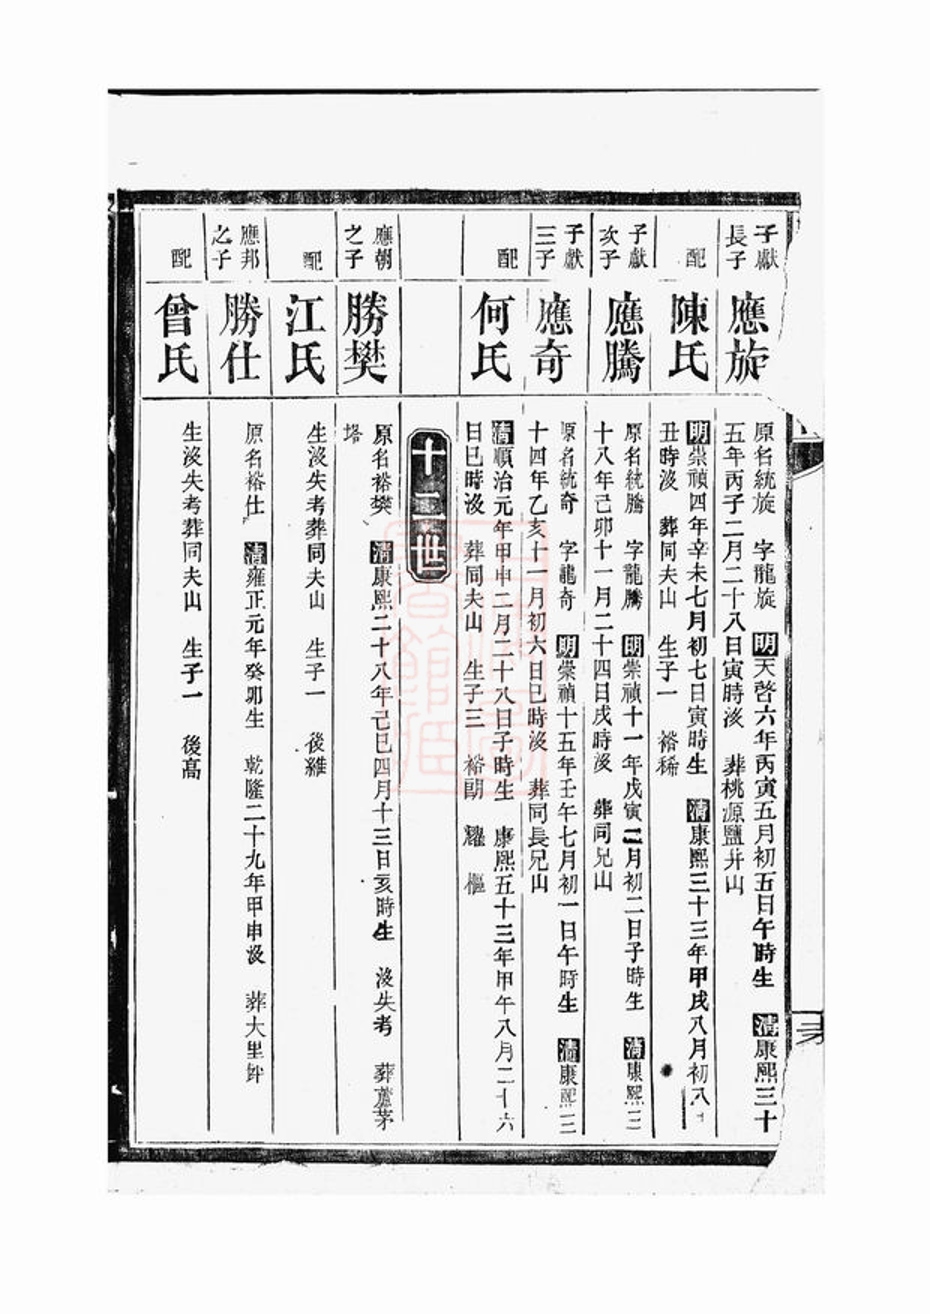 子獻
長子
應旋
原名統旋 字龍旋 明天啓六年丙寅五月初五日午時生 清康熙三十
五年丙子二月二十八日寅時沒 葬桃源鹽井山
配
陳氏
明崇禎四年辛未七月初七日寅時生 清康熙三十三年甲戌八月初八
丑時沒 葬同夫山 生子一 裕稀
子獻
次子
應騰
原名統騰 字龍騰 明崇禎十一年戊寅二月初二日子時生 清康熙三
十八年己卯十一月二十四日戌時沒 葬同兄山
子獻
三子
應奇
原名統奇 字龍奇 明崇禎十五年壬午七月初一日午時生 清康熙三
十四年乙亥十一月初六日巳時沒 葬同長兄山
配
何氏
清順治元年甲申二月二十八日子時生 康熙五十三年甲午八月二十六
日巳時沒 葬同夫山 生子三 裕 樞
十二世
應朝
之子
勝樊
原名裕樊 清康熙二十八年己巳四月十三日亥時生 沒失考 葬蘆茅
塔
配
江氏
生沒失考葬同夫山 生子一 後維
應邦
之子
勝仕
原名裕仕 清雍正元年癸卯生 乾隆二十九年甲申沒 葬大里
配
曾氏
生沒失考葬同夫山 生子一 後高